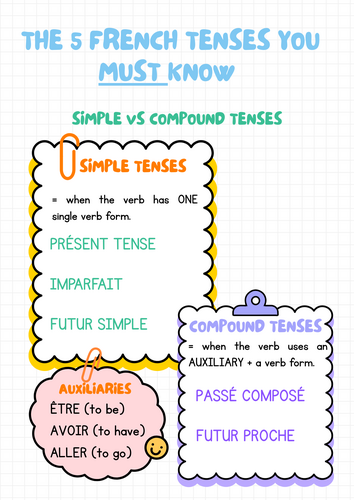 THE 5 FRENCH TENSES YOU
MUST KNOW
SIMPLE VS COMPOUND TENSES
SIMPLE TENSES
= when the verb has ONE
single verb form.
PRÉSENT TENSE
IMPARFAIT
FUTUR SIMPLE
COMPOUND TENSES
= when the verb uses an
AUXILIARY + a verb form.
PASSÉ COMPOSÉ
FUTUR PROCHE
AUXILIARIES
ÊTRE (to be)
AVOIR (to have)
ALLER (to go)